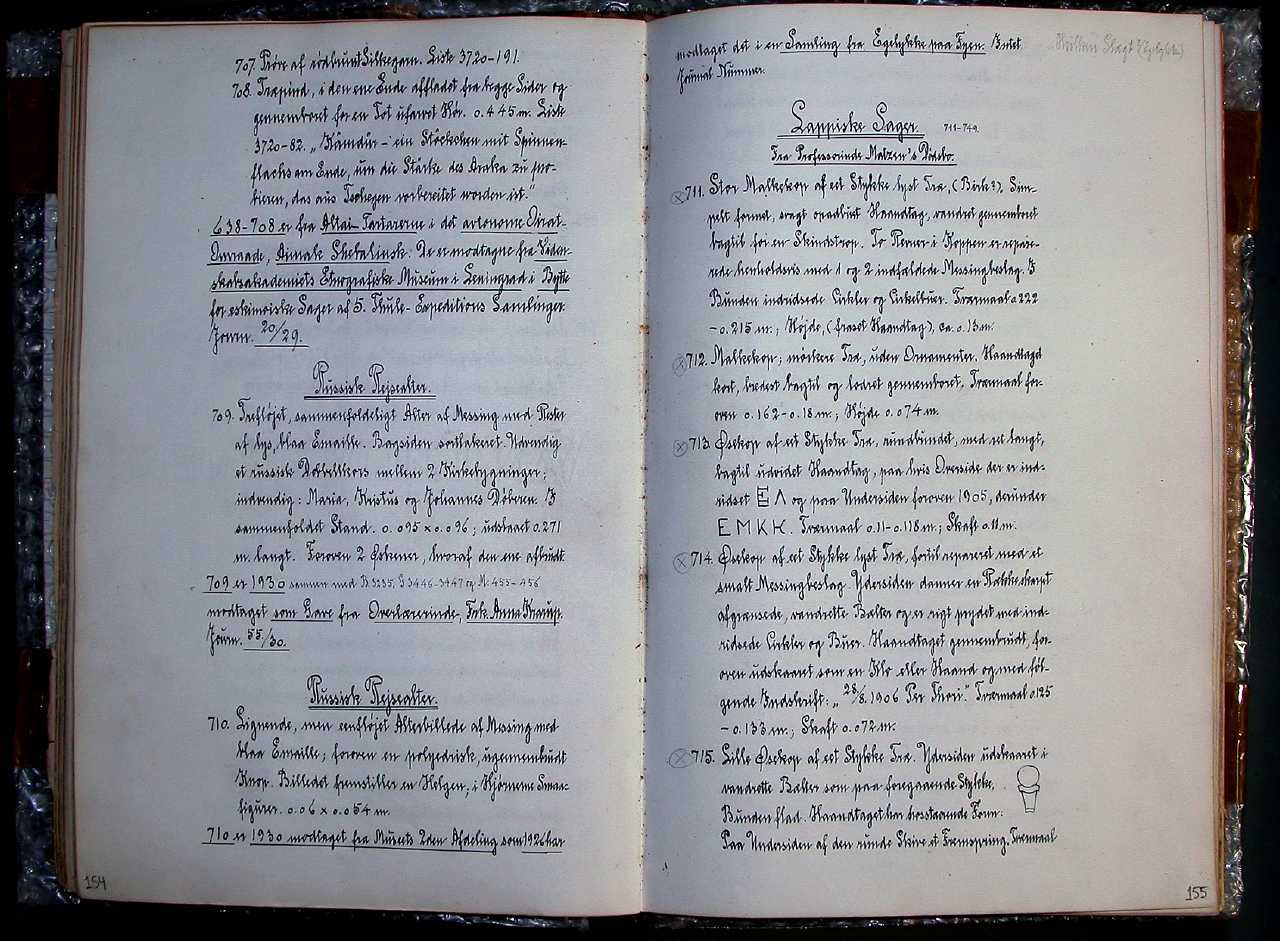 707. Prøve af rødbrunt Silkegarn. Liste 3720-191.
708. Træpind, i den ene Ende affladet fra begge Sider og
gennemboret for en Tot ufarvet Hør. 0.445 m. Liste
3720-82. „Kämdür - ein Stöckchen mit Spinnen-
flachs am Ende, um die Stärke des Araka zu pro-
bieren, das aus Tschegen vorbereitet worden ist."
638-708 er fra Altai-Tartarerne i det autonome Oirat-
Omraade, Aimak Shebalinsk. De er modtagne fra Viden-
skabsakademiets Etnografiske Museum i Leningrad i Bytte
for eskimoiske Sager af 5. Thule-Expeditions Samlinger.
Journ. 20/29.
Russisk Rejsealter.
709. Trefløjet, sammenfoldeligt Alter af Messing med Rester
af lys, blaa Emaille. Bagsiden sortlakeret. Udvendig
et russisk Dobbeltkors mellem 2 Kirkebygninger;
indvendig: Maria, Kristus og Johannes Døberen. I
sammenfoldet Stand. 0.095 x 0.096; udslaaet 0.271
m. langt. Foroven 2 Øskener, hvoraf den ene afbrudt.
709 er 1930 sammen med B. 3235, G 3446-3447 og M. 453-456
modtaget som Gave fra Overlærerinde, Frk. Anna Krarup.
Journ. 55/30.
Russisk Rejsealter.
710. Lignende, men eenfløjet Alterbillede af Messing med
blaa Emaille; foroven en polyedrisk, ugennembrudt
Knop. Billedet fremstiller en Helgen; i Hjørnerne Smaa-
figurer. 0.06 x 0.054 m.
710 er 1930 modtaget fra Museets 2den Afdeling som 1926 har
154
modtaget det i en Samling fra Egelykke paa Fyen. Intet
Journal Nummer.
Lappiske Sager. 711-749.
Fra Professorinde Malzen's Dødsbo.
711. Stor Malkekop af eet Stykke lyst Træ, (Birk?). Sim-
pelt formet, svagt opadbuet Haandtag, vandret gennemboret
bagtil for en Skindstrop. To Revner i Koppen er repare-
rede henholdsvis med 1 og 2 indfældede Messingbeslag. I
Bunden indridsede Cirkler og Cirkelbuer. Tværmaal 0.222
- 0.215 m.; Højde, (fraset Haandtag), ca. 0.13 m.
712. Malkekop; mørkere Træ, uden Ornamenter. Haandtaget
kort, bredest bagtil og lodret gennemboret. Tværmaal for-
oven 0.162-0.18 m.; Højde 0.074 m.
713. Øsekop af eet Stykke Træ, rundbundet, med ret langt,
bagtil udvidet Haandtag, paa hvis Overside der er ind-
ridset E Λ og paa Undersiden foroven 1905, derunder
E M K K. Tværmaal 0.11-0.118 m.; Skaft 0.11 m.
714. Øsekop af eet Stykke lyst Træ, fortil repareret med et
smalt Messingbeslag. Ydersiden danner en Række, skarpt
afgrænsede, vandrette Bælter og er rigt prydet med ind-
ridsede Cirkler og Buer. Haandtaget gennembrudt, for-
oven udskaaret som en Klo eller Haand og med føl-
gende Indskrift: „28/8. 1906 Per Thori." Tværmaal 0.125
- 0.133 m.; Skaft 0.072 m.
715. Lille Øsekop af eet Stykke Træ. Ydersiden udskaaret i
vandrette Bælter som paa foregaaende Stykke,
Bunden flad. Haandtaget har hosstaaende Form:
Paa Undersiden af den runde Skive et Fremspring. Tværmaal
155